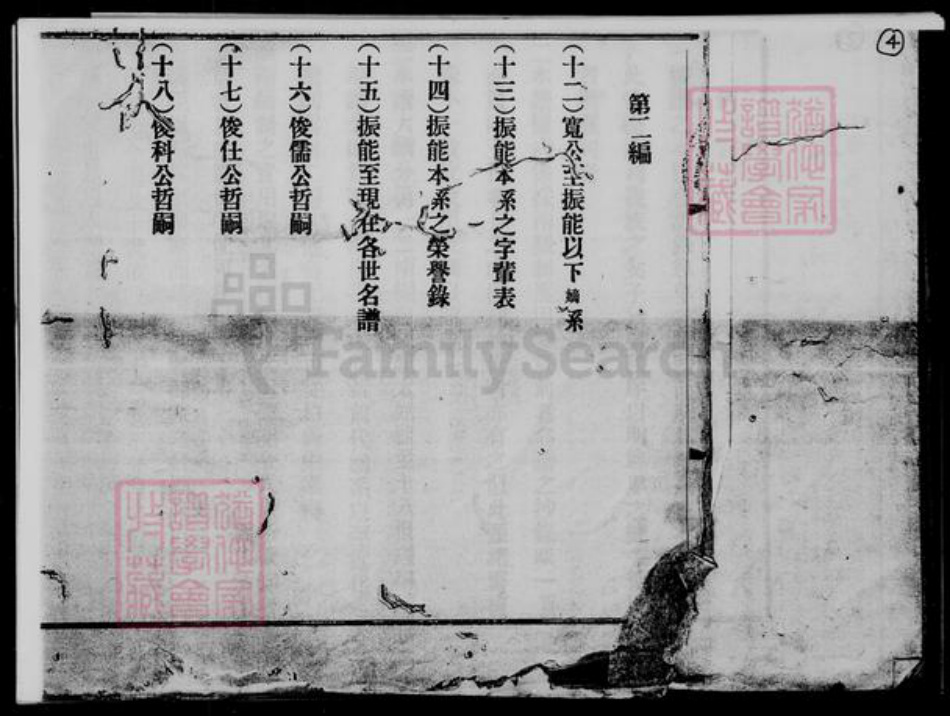 ④
第二編
（十二）寬公至振能以下嫡系
（十三）振能本系之字輩表
（十四）振能本系之榮譽錄
（十五）振能至現在各世名譜
（十六）俊儒公哲嗣
（十七）俊仕公哲嗣
（十八）俊科公哲嗣
FamilySearch